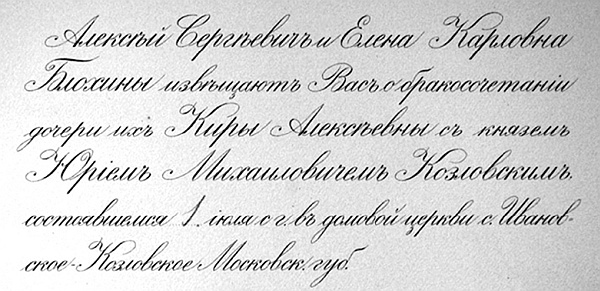 Алексѣй Сергѣевичъ и Елена Карловна
Блохины извѣщаютъ Васъ о бракосочетаніи
дочери ихъ Киры Алексѣевны съ княземъ
Юріемъ Михаиловичемъ Козловскимъ,
состоявшемся 1. іюля с г. въ домовой церкви с. Иванов-
ское-Козловское Московск. губ.